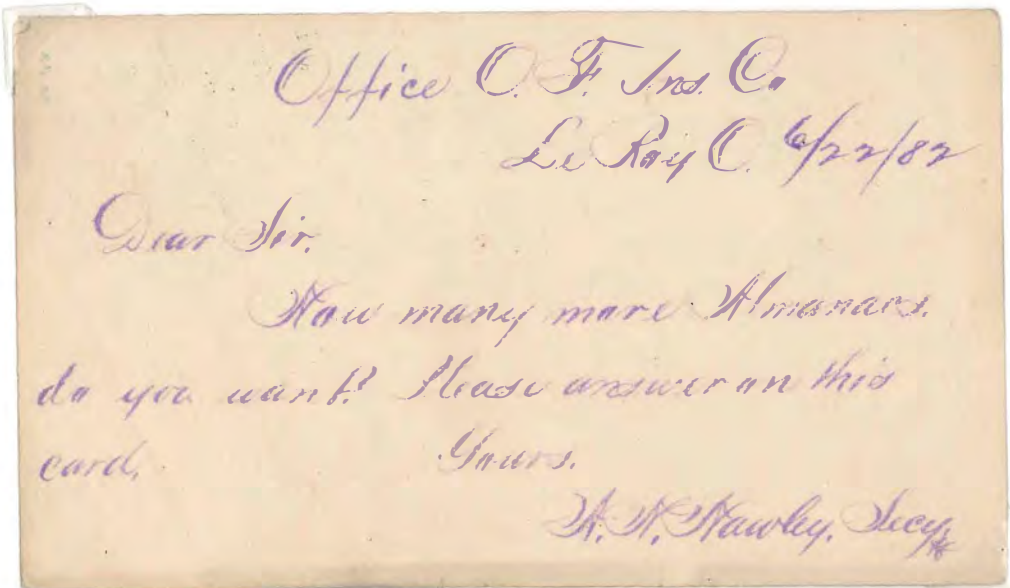 Office O. F. Ins. Co
Le Roy O. 6/22/82
Dear Sir.
How many more Almanacs.
do you want? Please answer on this
card. Yours.
Hawley. Secy.